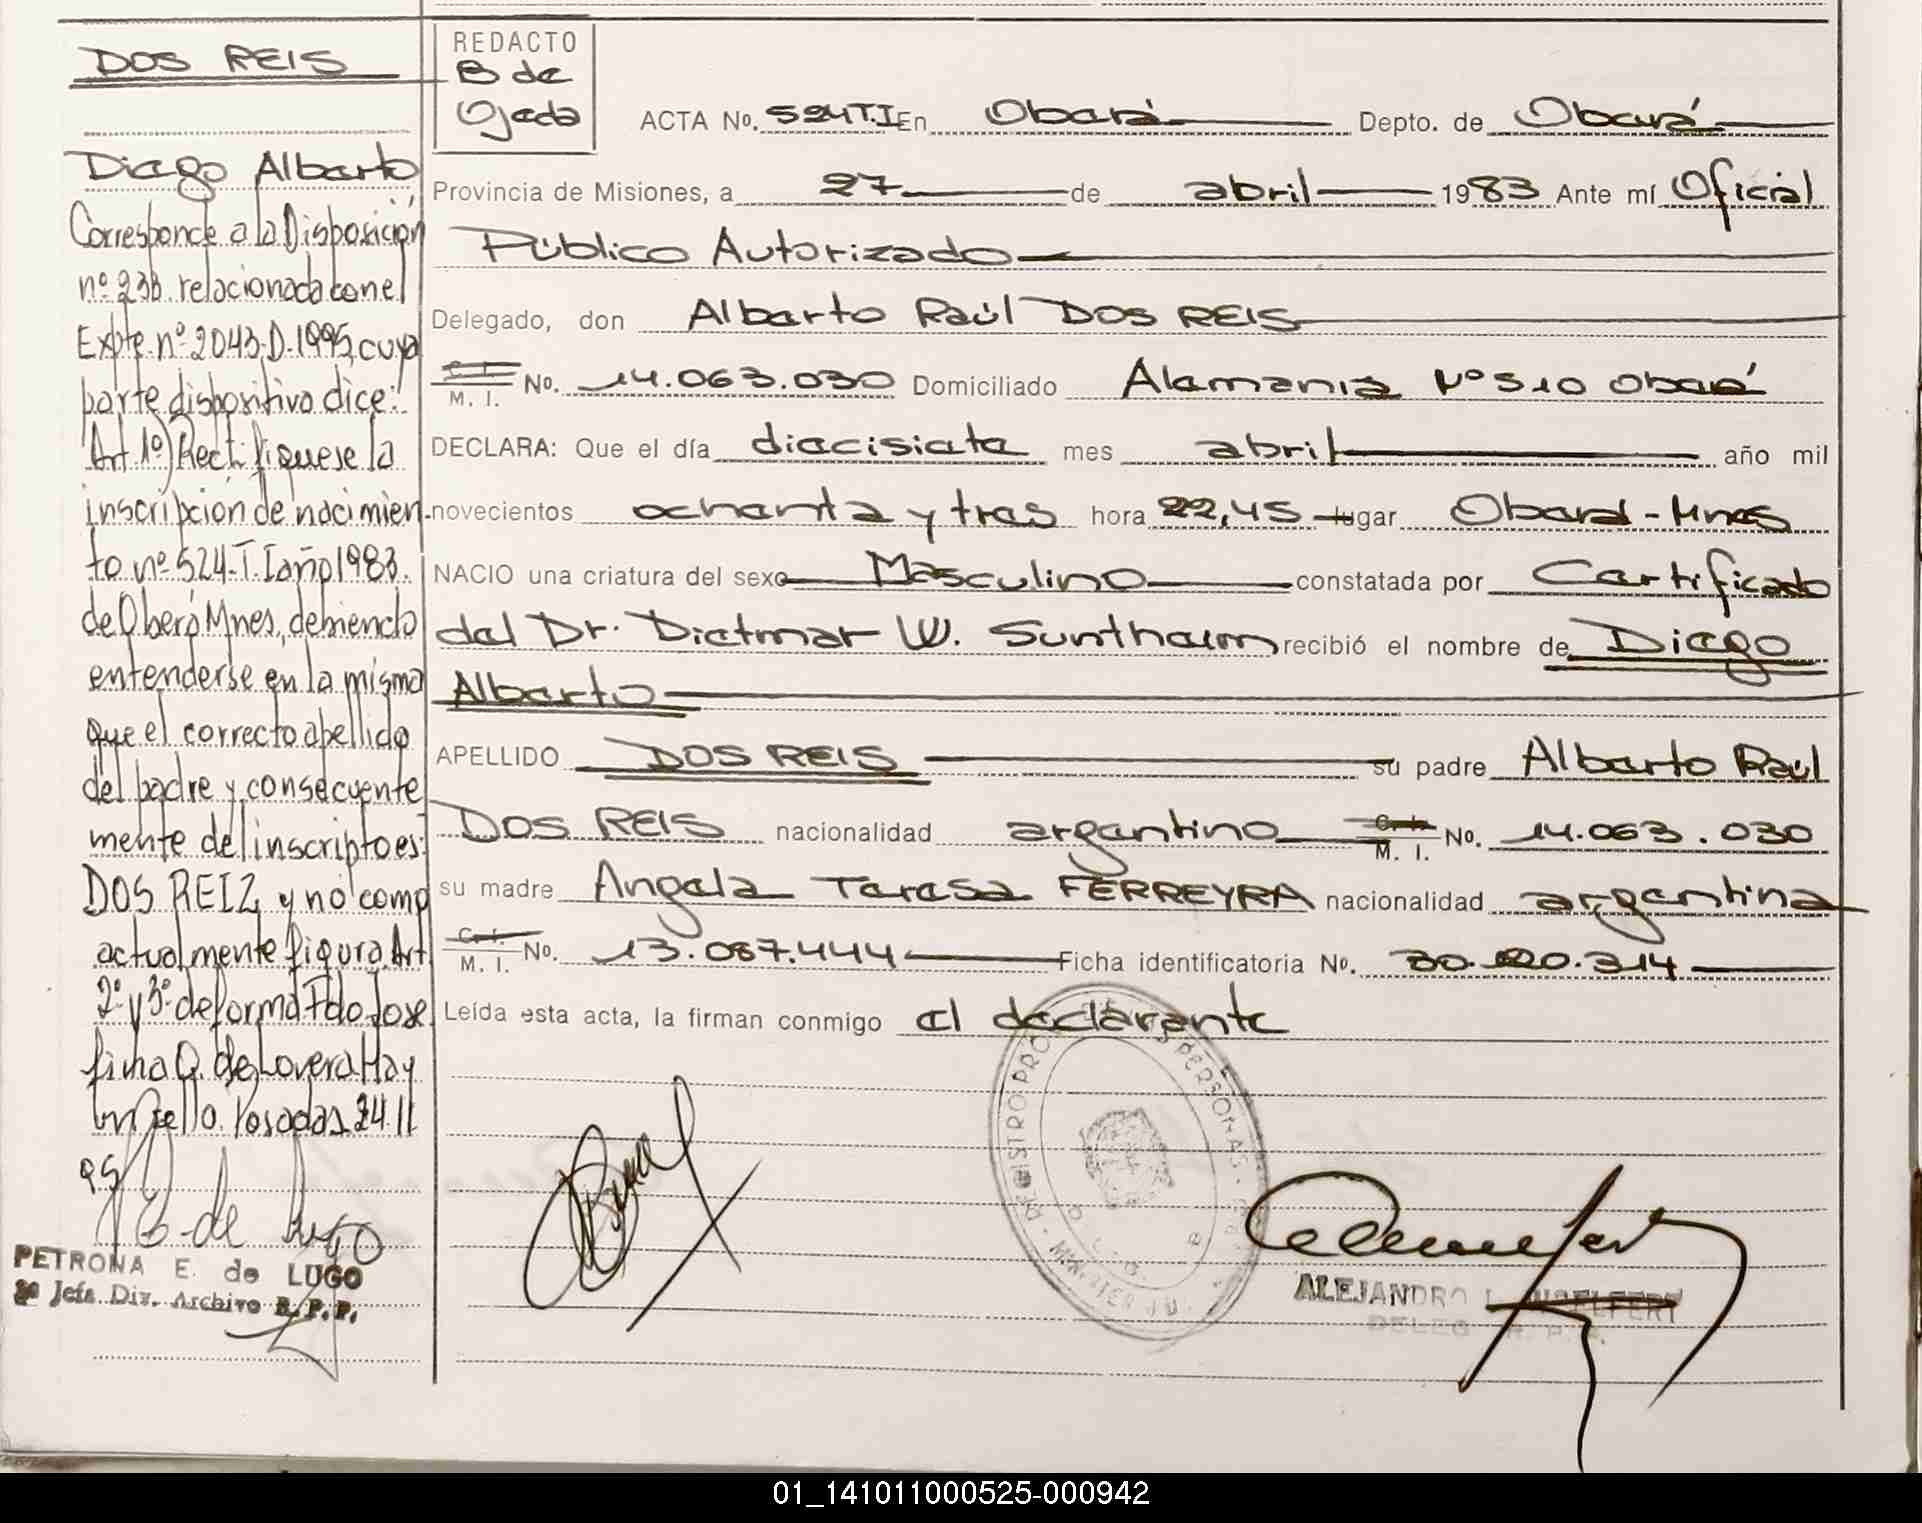 DOS REIS
Diego Alberto
Corresponde a la Disposición
nº 238 relacionada con el
Expte nº 2043-D-1995, cuya
parte dispositiva dice:
Art 1º) Rectifiquese la
inscripción de nacimien-
to nº 524-T.I año 1983.
de Oberá Mnes, debiendo
entenderse en la misma
que el correcto apellido
del padre y consecuente
mente del inscripto es:
DOS REIZ y no como
actualmente figura. Art
2º y 3º de forma Fdo Jose
fina Q. de Lovera Hay
un sello. Posadas 24 11
95
PETRONA E. de LUGO
Jefe Div. Archivo R. P. P.
REDACTO
B de
Ojeda
ACTA No. 524T.I En Oberá Depto. de Oberá
Provincia de Misiones, a 27 de abril 1983 Ante mí Oficial
Público Autorizado
Delegado, don Alberto Raúl DOS REIS
C. I. M. I. No. 14.063.030 Domiciliado Alemania Nº 510 Oberá
DECLARA: Que el día diecisiete mes abril año mil
novecientos ochenta y tres hora 22,45 lugar Oberá - Mnes
NACIO una criatura del sexo Masculino constatada por Certificado
del Dr. Dietmar W. Sunthaim recibió el nombre de Diego
Alberto
APELLIDO DOS REIS su padre Alberto Raúl
DOS REIS nacionalidad argentino C. I. M. I. No. 14.063.030
su madre Angela Teresa FERREYRA nacionalidad argentina
C. I. M. I. No. 13.087.444 Ficha identificatoria No. 30.220.314
Leída esta acta, la firman conmigo el declarante
ALEJANDRO
01_141011000525-000942